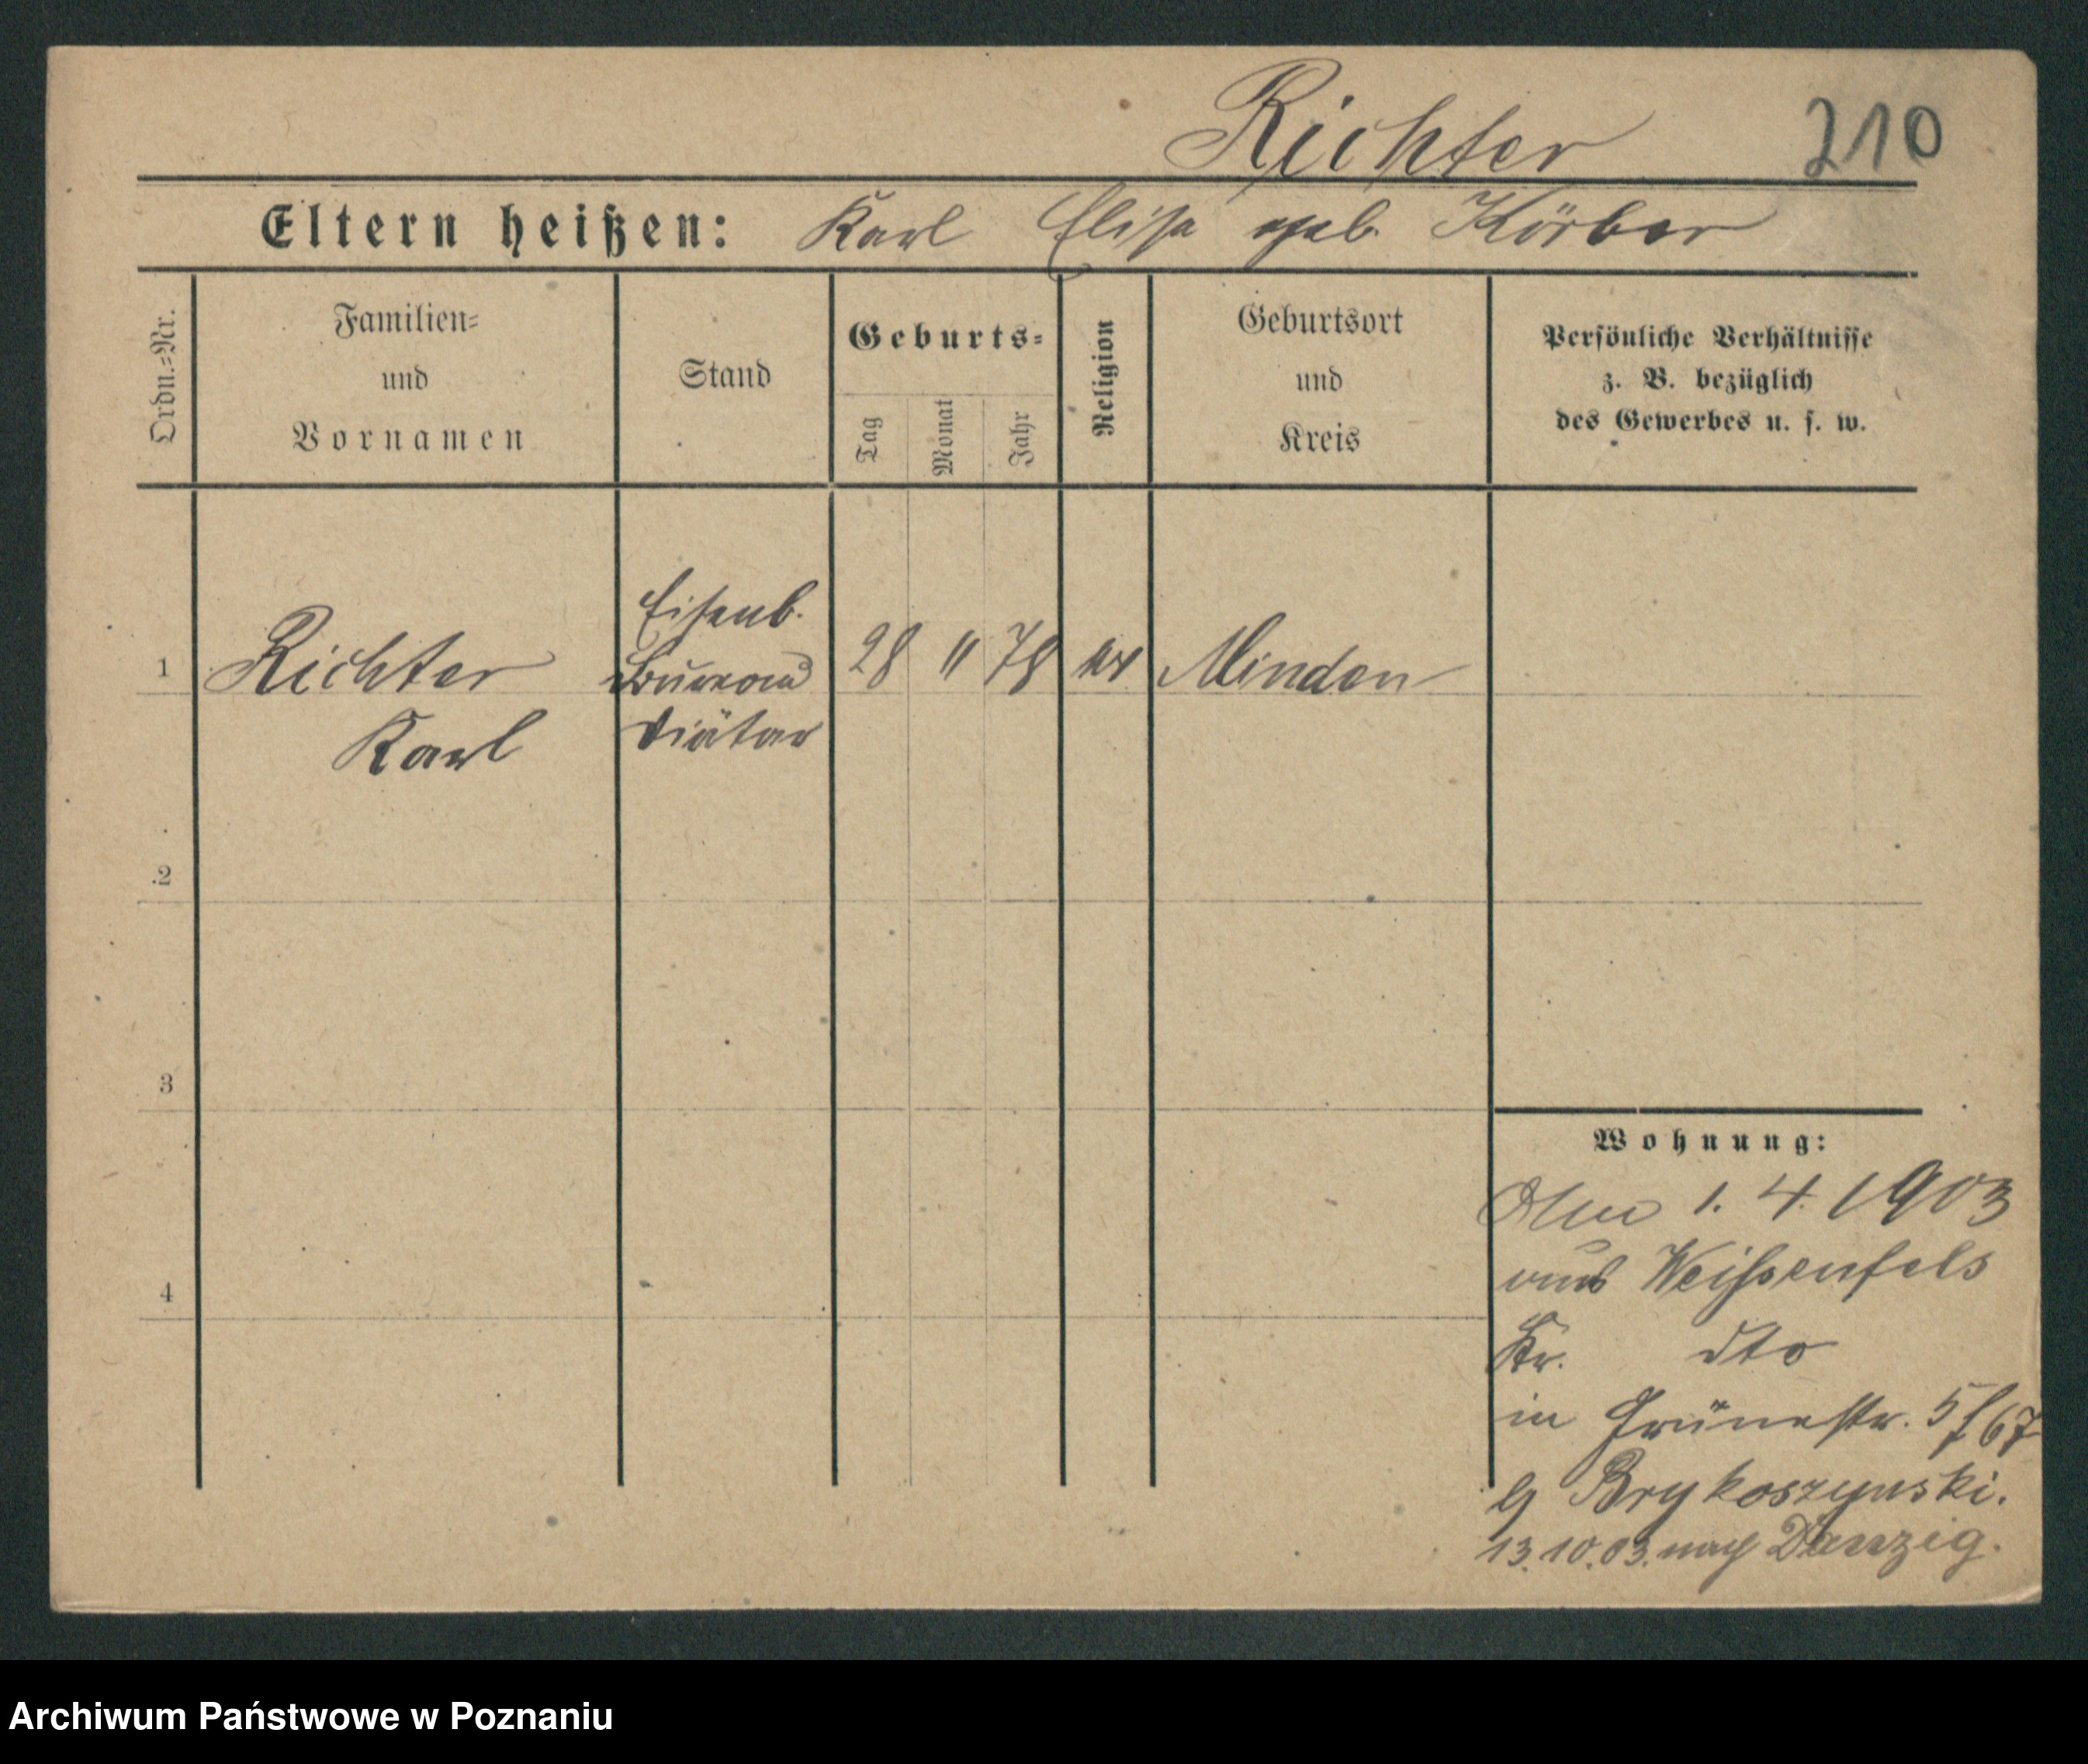 Richter 210
Eltern heißen: Karl Elise geb. Körber
Ordn.=Nr.
Familien=
und
Vornamen
Stand
Geburts=
Tag
Monat
Jahr
Religion
Geburtsort
und
Kreis
Persönliche Verhältnisse
z. B. bezüglich
des Gewerbes u. s. w.
1 Richter
Karl
Eisenb.
Bureau
Diätar
28 11 78
Minden
2
3
4
Wohnung:
1. 4. 1903
aus Weißenfels
Kr. dto
in Grünestr. 5
b/ Brykoszynski.
13.10.03. nach Danzig.
Archiwum Państwowe w Poznaniu